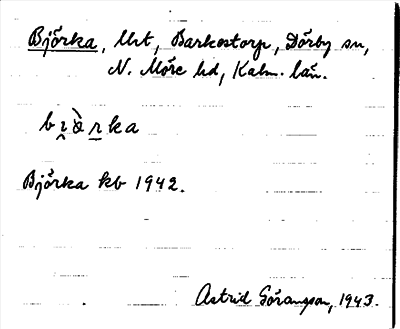 Björka, lht, Barkestorp, Dörby sn,
N. Möre hd, Kalm. län.
bɪ̯òrka
Björka kb 1942.
Astrid Göransson, 1943.